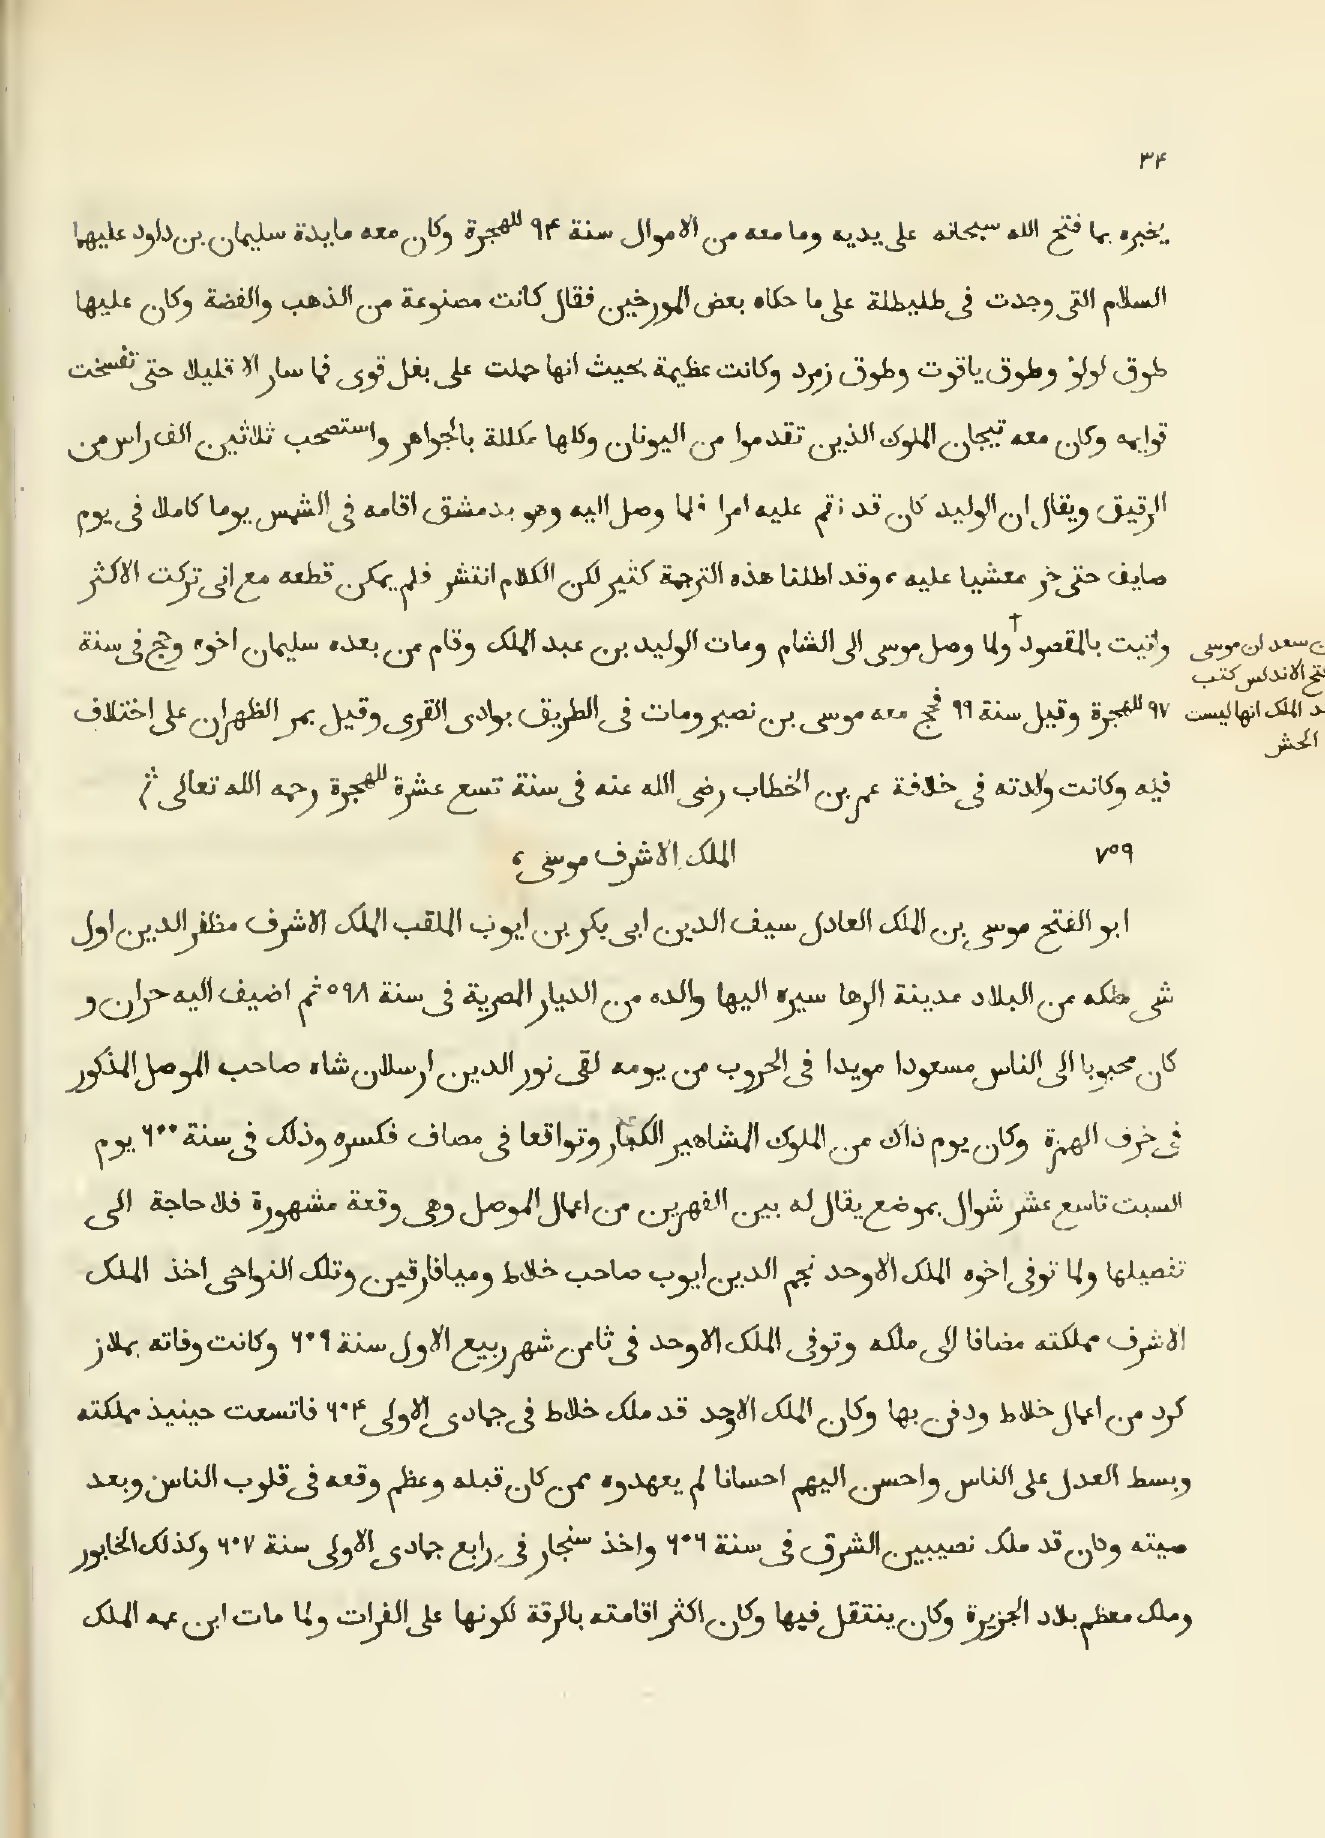 ۳۴
يخبره بما فتح الله سبحانه على يديه وما معه من الاموال سنة ۹۴ للهجرة وكان معه مايدة سليمان بن داود عليهما
السلام التى وجدت فى طليطلة على ما حكاه بعض المورخين فقال كانت مصنوعة من الذهب والفضة وكان عليها
طوق لولؤ وطوق ياقوت وطوق زمرد وكانت عظيمة بحيث انها حملت على بغل قوى فما سار الا قليلا حتى تفسخت
قوايمه وكان معه تيجان الملوك الذين تقدموا من اليونان وكلها مكللة بالجواهر واستصحب ثلاثين الف راس من
الرقيق ويقال ان الوليد كان قد نقم عليه امرا فلما وصل اليه وهو بدمشق اقامه فى الشمس يوما كاملا فى يوم
صايف حتى خر مغشيا عليه ، وقد اطلنا هذه الترجمة كثير لكن الكلام انتشر فلم يمكن قطعه مع انى تركت الاكثر
واتيت بالمقصود † ولما وصل موسى الى الشام ومات الوليد بن عبد الملك وقام من بعده سليمان اخوه وحج فى سنة
۹۷ للهجرة وقيل سنة ۹۹ فحج معه موسى بن نصير ومات فى الطريق بوادى القرى وقيل بمر الظهران على اختلاف
فيه وكانت ولادته فى خلافة عمر بن الخطاب رضى الله عنه فى سنة تسع عشرة للهجرة رحمه الله تعالى
سعد ان موسى
الاندلس كتب
الملك انها ليست
الحشر
۷۵۹ الملك الاشرف موسى ،
ابو الفتح موسى بن الملك العادل سيف الدين ابى بكر بن ايوب الملقب الملك الاشرف مظفر الدين اول
شى ملكه من البلاد مدينة الرها سيره اليها والده من الديار المصرية فى سنة ۵۹۸ ثم اضيف اليه حران و
كان محبوبا الى الناس مسعودا مويدا فى الحروب من يومه لقى نور الدين ارسلان شاه صاحب الموصل المذكور
فى حرف الهمزة وكان يوم ذاك من الملوك المشاهير الكبار وتواقعا فى مصاف فكسره وذلك فى سنة ۶۰۰ يوم
السبت تاسع عشر شوال بموضع يقال له بين النهرين من اعمال الموصل وهى وقعة مشهورة فلا حاجة الى
تفصيلها ولما توفى اخوه الملك الاوحد نجم الدين ايوب صاحب خلاط وميافارقين وتلك النواحى اخذ الملك
الاشرف مملكته مضافا الى ملكه وتوفى الملك الاوحد فى ثامن شهر ربيع الاول سنة ۶۰۹ وكانت وفاته بملاز
كرد من اعمال خلاط ودفن بها وكان الملك الاوحد قد ملك خلاط فى جمادى الاولى ۶۰۴ فاتسعت حينيذ مملكته
وبسط العدل على الناس واحسن اليهم احسانا لم يعهدوه ممن كان قبله وعظم وقعه فى قلوب الناس وبعد
صيته وكان قد ملك نصيبين الشرق فى سنة ۶۰۶ واخذ سنجار فى رابع جمادى الاولى سنة ۶۰۷ وكذلك الخابور
وملك معظم بلاد الجزيرة وكان ينتقل فيها وكان اكثر اقامته بالرقة لكونها على الفرات ولما مات ابن عمه الملك